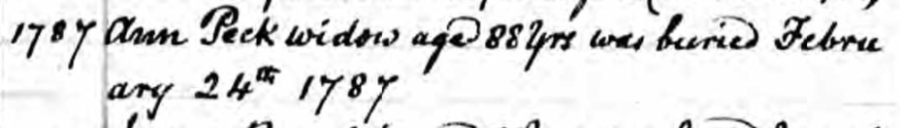 1787 Ann Peck widow aged 88 yrs was buried Febru
ary 24th 1787